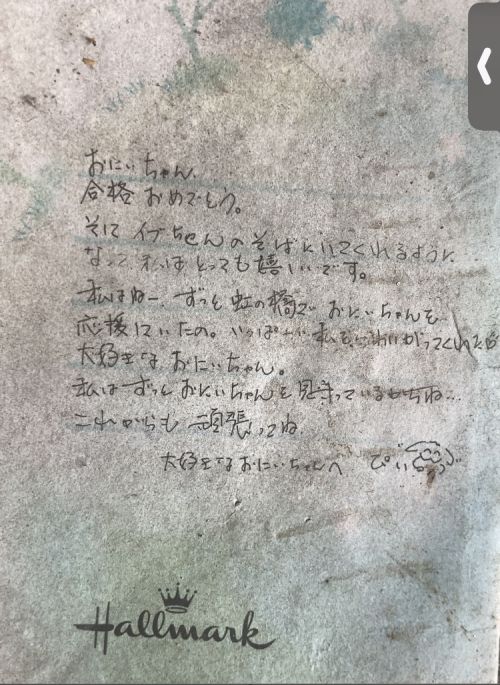 おにいちゃん、
合格おめでとう。
そして イブちゃんのそばにいてくれるように
なって、私はとっても嬉しいです。
私はねー、ずっと虹の橋で おにいちゃんを
応援していたの。いっぱーい 私を かわいがってくれた
大好きな おにいちゃん。
私は ずっと おにいちゃんを 見守っているからね…
これからも 頑張ってね。
大好きなおにいちゃんへ ぴい
Hallmark